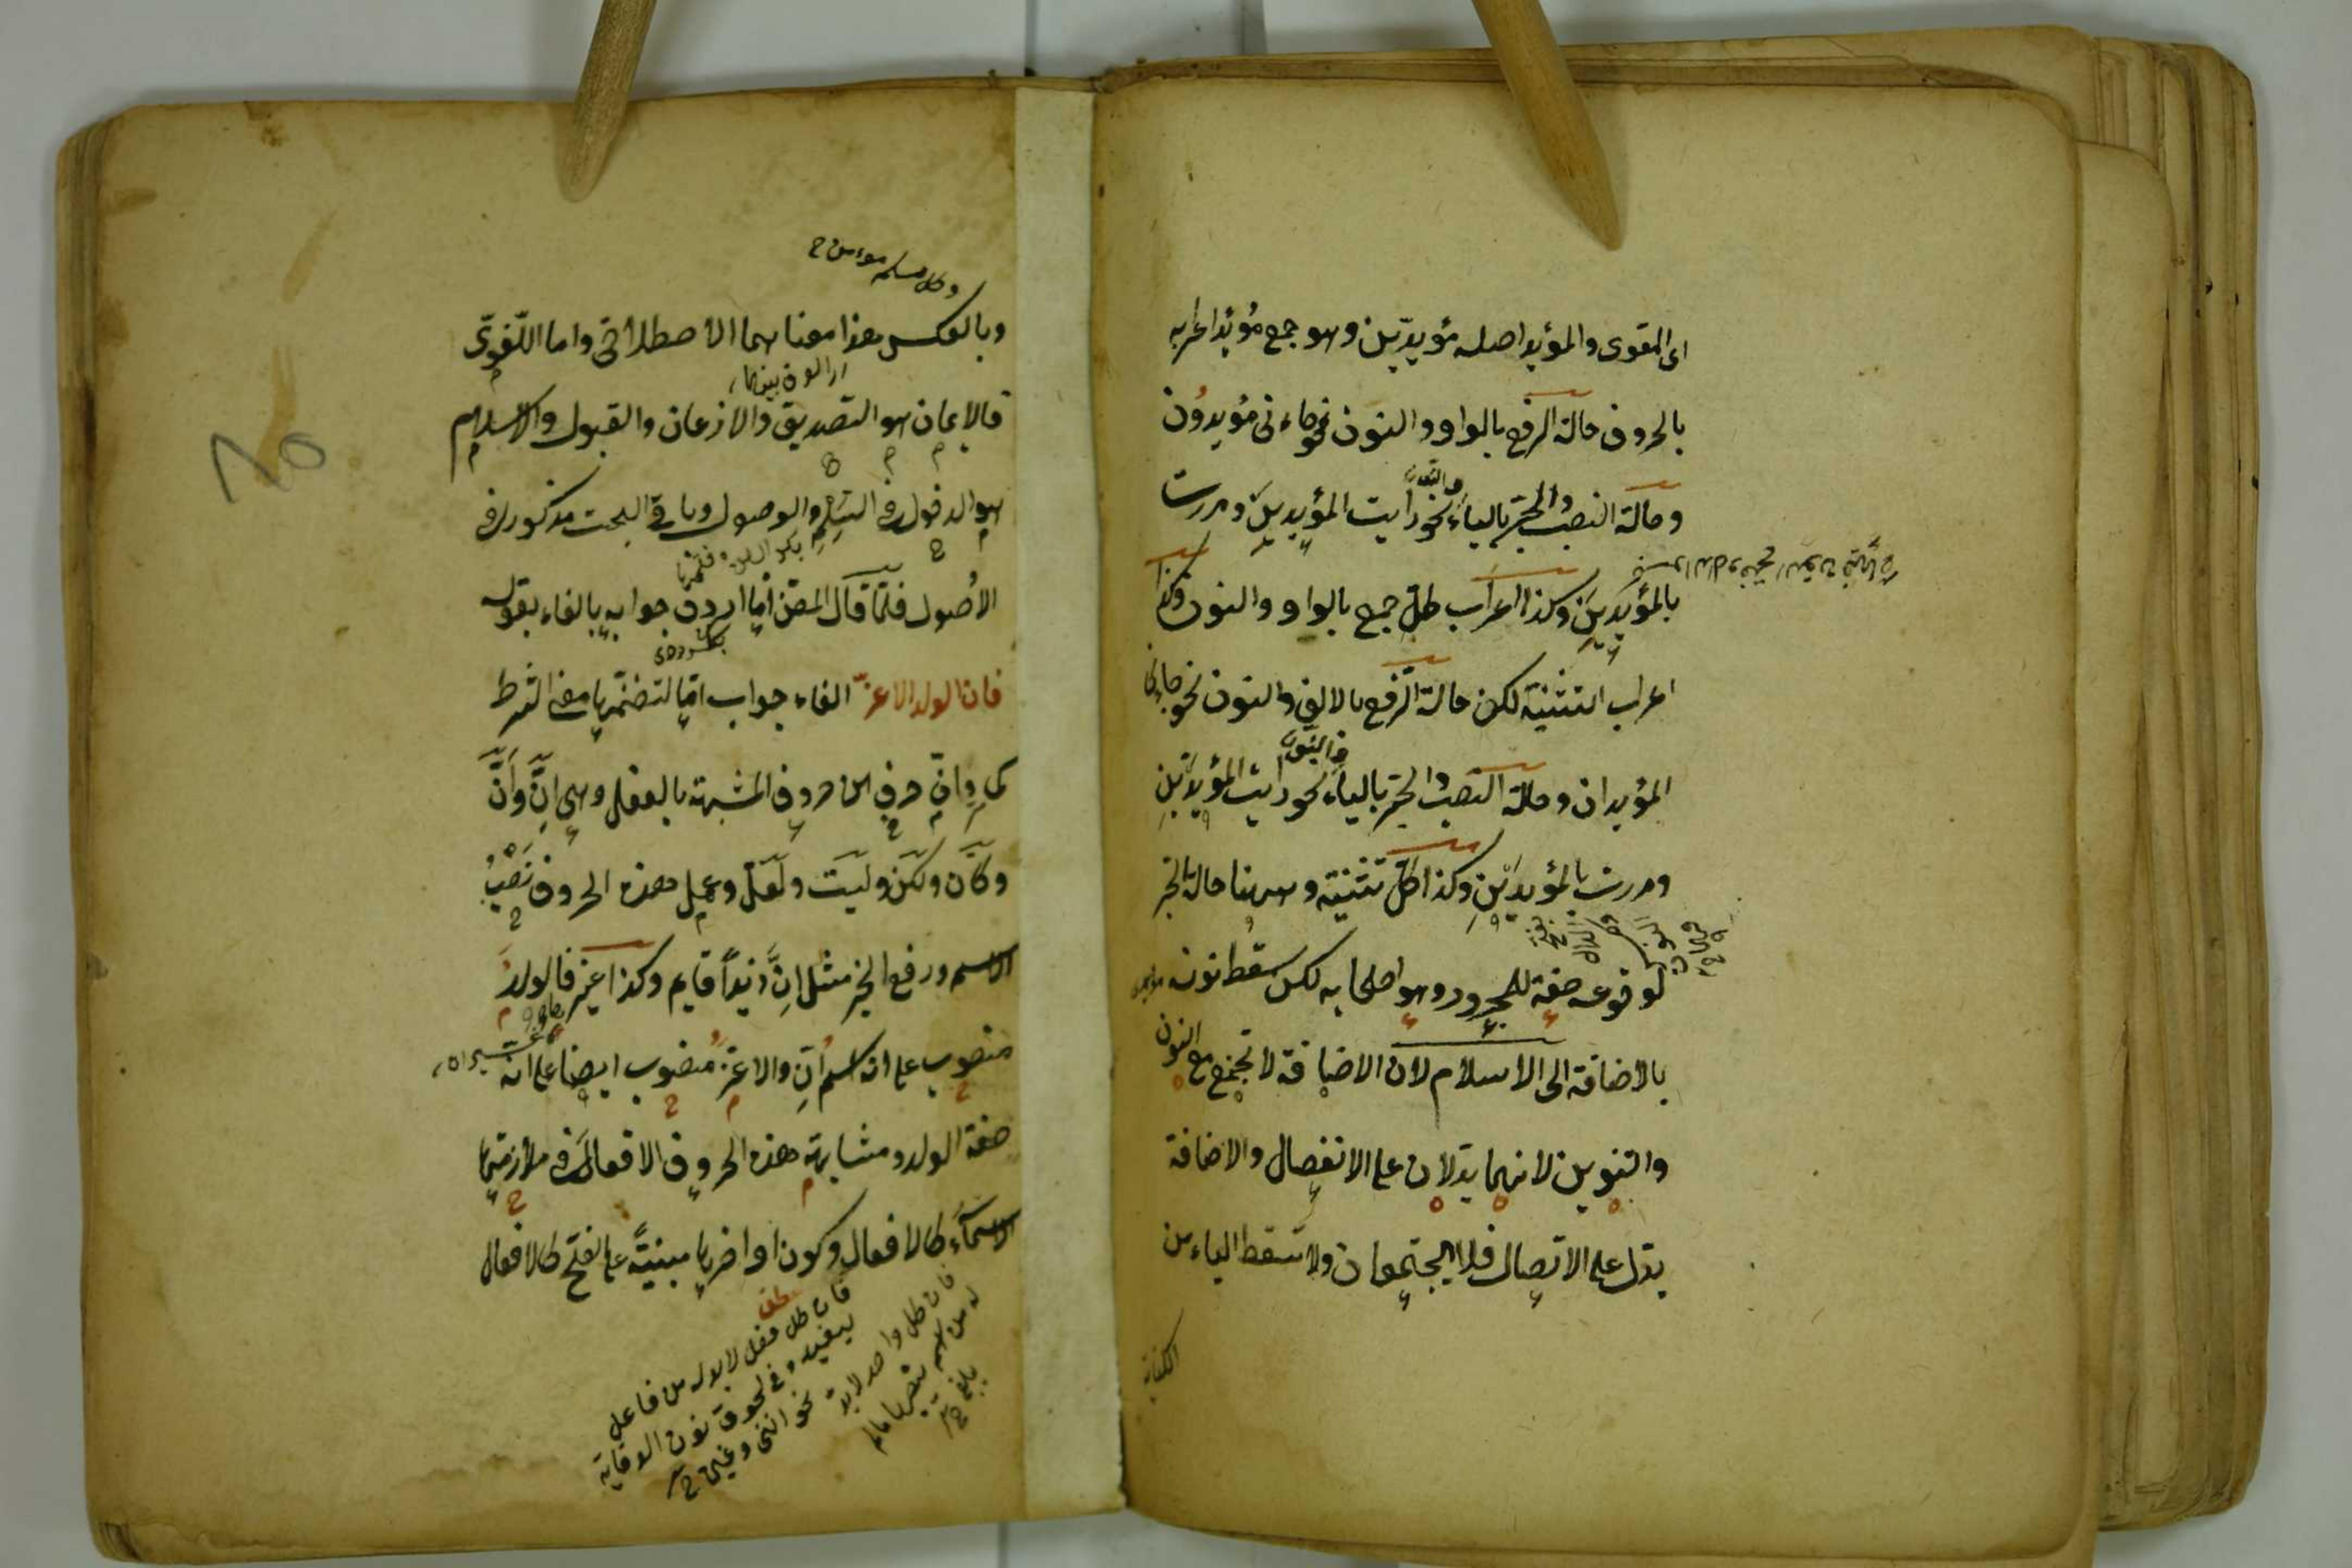 اى المقوى والمؤيد اصله مؤيدين وهو جمع مؤيد اعرابه
بالحروف حالة الرفع بالواو والنون نحو جاءنى مؤيدون
وحالة النصب والجر بالياء والنون نحو رايت المؤيدين ومررت
بالمؤيدين وكذا اعراب كل جمع بالواو والنون وكذا
اعراب التثنية لكن حالة الرفع بالالف والنون نحو جاءنى
المؤيدان وحالة النصب والجر بالياء والنون نحو رايت المؤيدين
ومررت بالمؤيدين وكذا كل تثنية وههنا حالة الجر
لوقوعه صفة للمجرور وهو اصحابه لكن سقط نونه
بالاضافة الى الاسلام لان الاضافة لا تجتمع مع النون
والتنوين لانهما يدلان على الانفصال والاضافة
يدل على الاتصال فلا يجتمعان ولا تسقط الياء من
الكتابة
وكل مسلم مؤمن ح
وبالعكس هذا معناهما الاصطلاحى واما اللغوى
فالايمان هو التصديق والاذعان والقبول والاسلام
هو الدخول فى السلم والوصول وباقى البحث مذكور فى
الأصول فلما قال المصن أما اردف جوابه بالفاء بقوله
فان الولد الاعز الفاء جواب اما لتضمنها معنى الشرط
كما مر وان حرف من حروف المشبهة بالفعل وهى إنّ وأنّ
وكأن ولكن وليت ولعل وعمل هذه الحروف نصب
الاسم ورفع الخبر مثل إنّ زيداً قايم وكذا غيره فالولد
منصوب على انه اسم ان والاعز منصوب ايضا على انه
صفة الولد ومشابهة هذه الحروف الافعال فى ملازمتها
الاسماء كالافعال وكون اواخرها مبنيّة على الفتح كالافعال
فان كل فعل لابد له من فاعل
وفى لحوق نون الوقاية
نحو اننى وغيره ح
فان كل واحد لابد
له من اسم